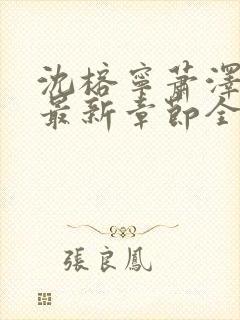 沈榕寧蕭澤
最新章節全
張良鳳